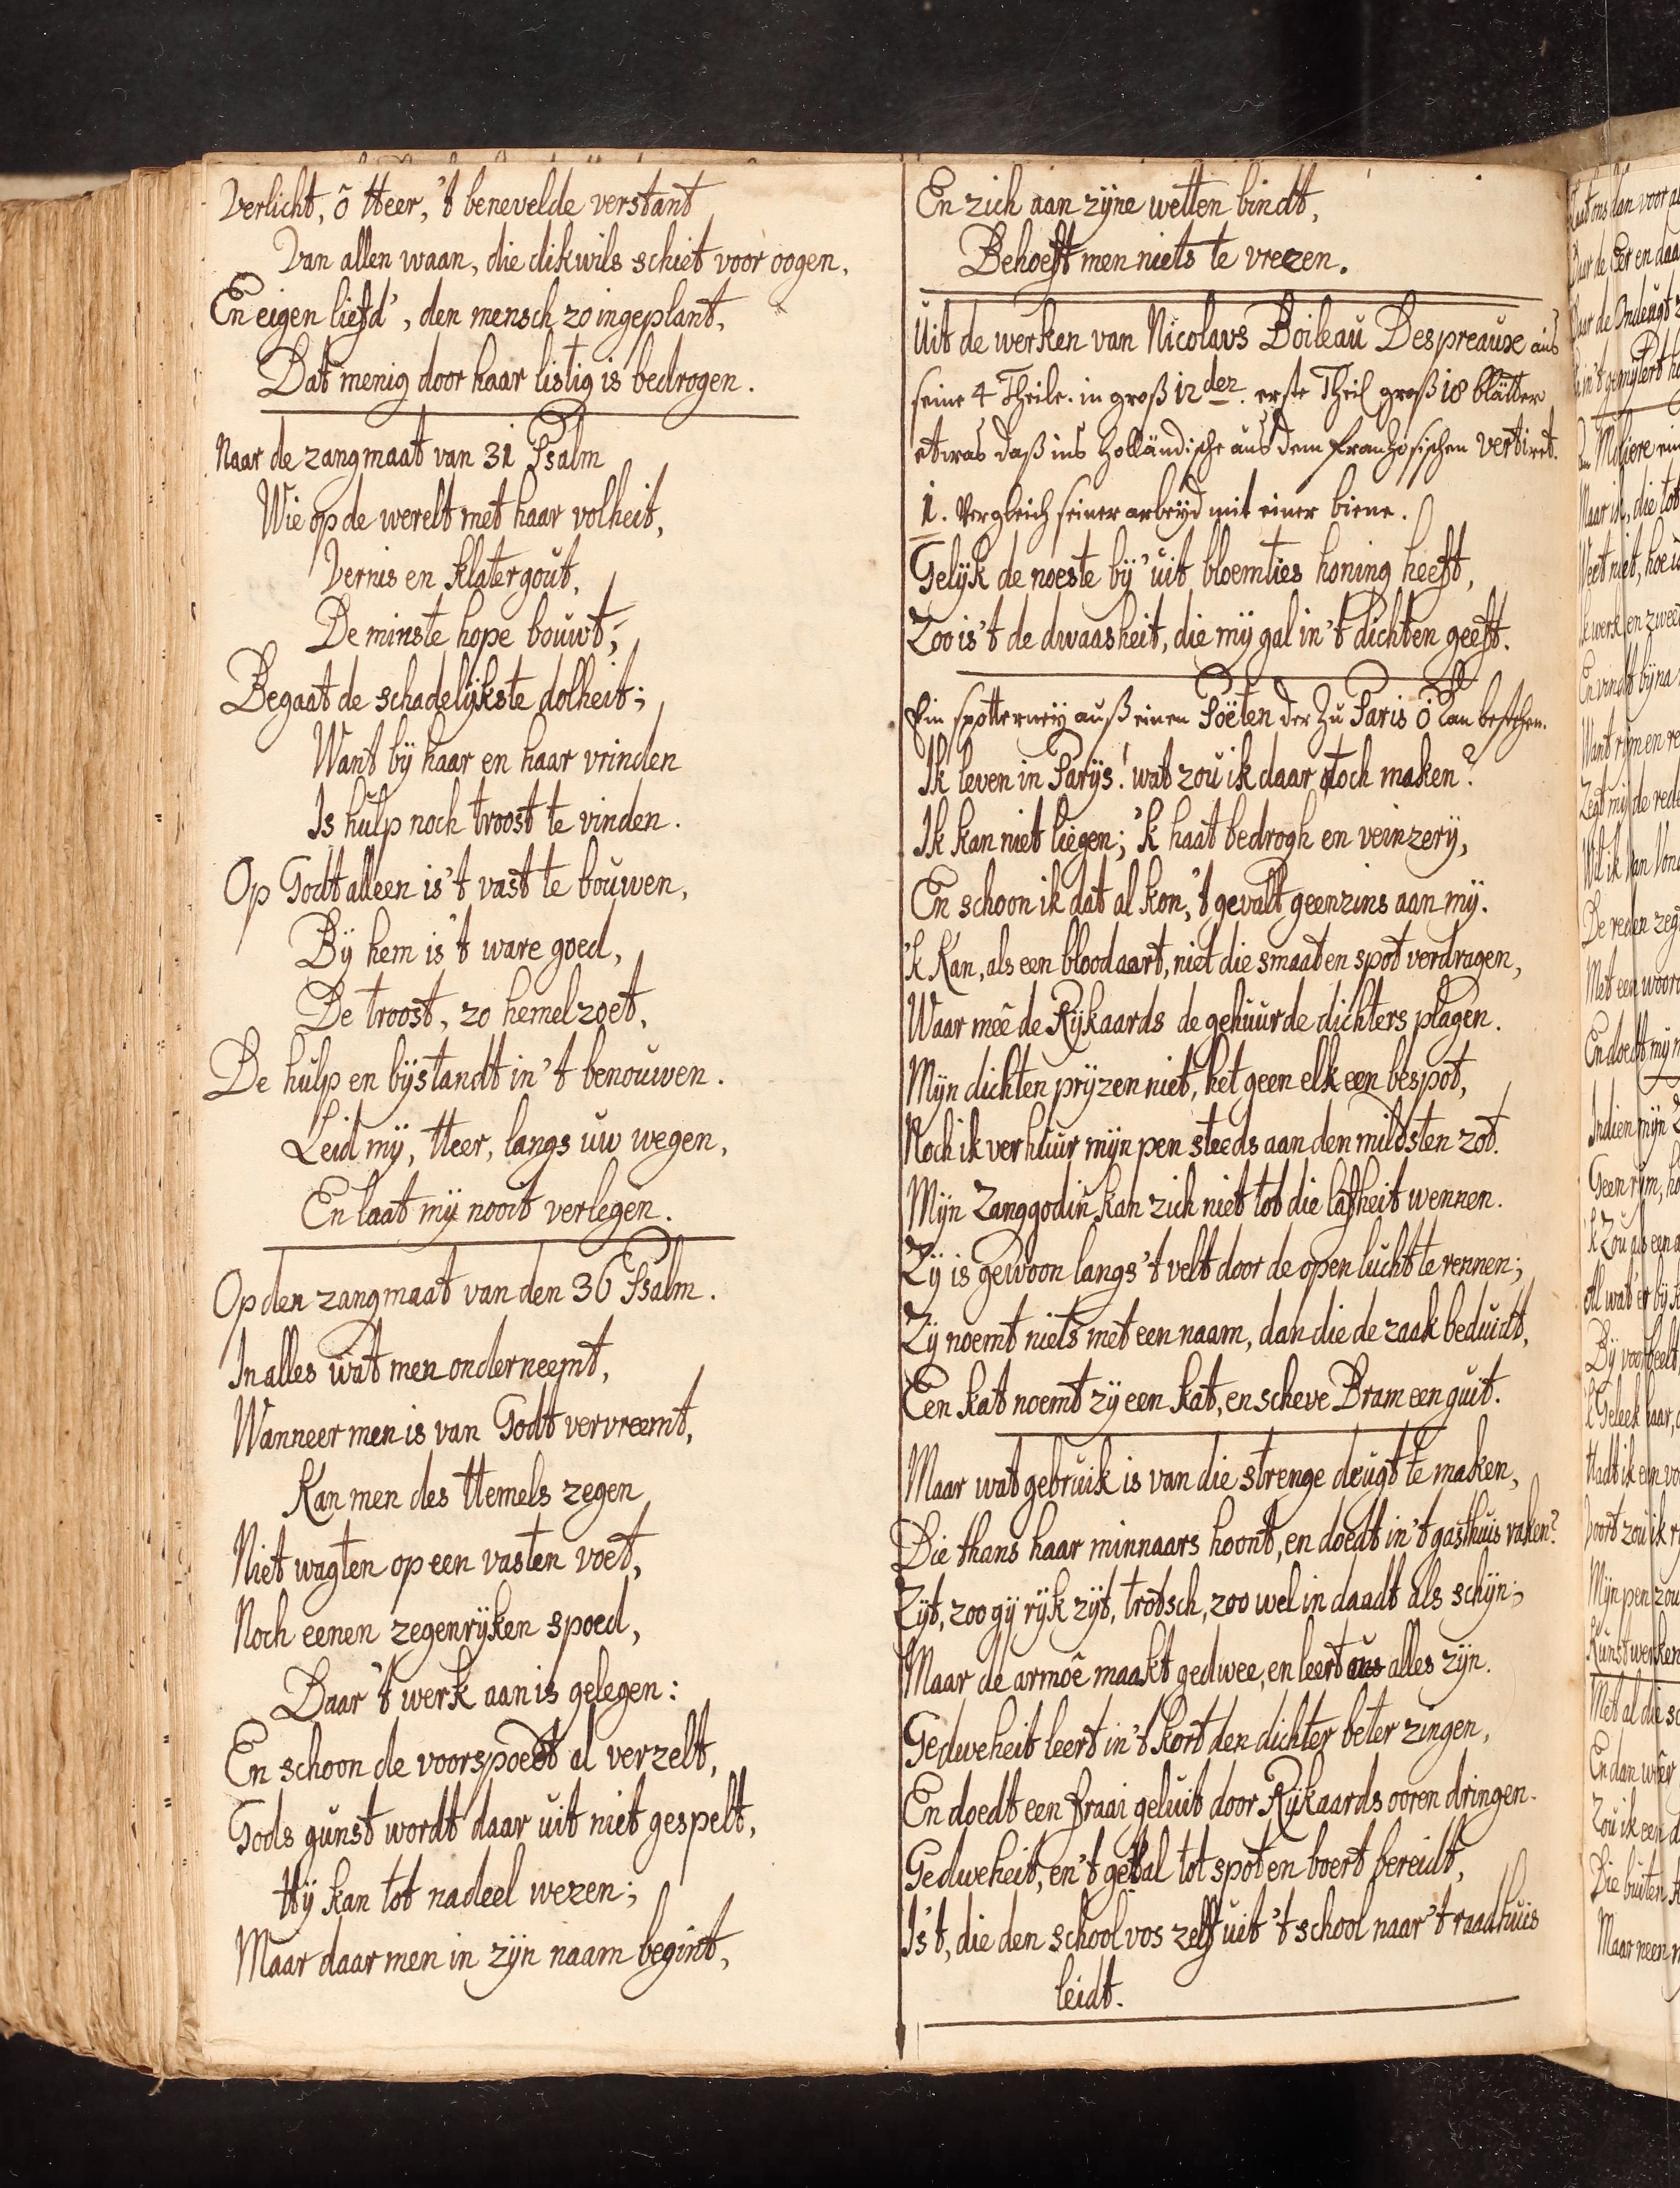 Verlicht, õ Heer, 't benevelde verstant
Van allen waan, die dikwils schiet voor oogen,
En eigen liefd', den mensch zo ingeplant,
Dat menig door haar listig is bedrogen.
Naar de zangmaat van 31 Psalm
Wie op de werelt met haar volheit,
Vernis en klatergout,
De minste hope bouwt,
Begaat de schadelykste dolheit;
Want bÿ haar en haar vrinden
Is hulp noch troost te vinden.
Op Godt alleen is 't vast te bouwen,
Bÿ hem is 't ware goed,
De troost, zo hemel zoet,
De hulp en bÿstandt in 't benouwen.
Leid mÿ, Heer, langs uw wegen,
En laat mÿ nooit verlegen.
Op den zangmaat van den 36 Psalm.
In alles wat men onderneemt,
Wanneer men is van Godt vervreemt,
Kan men des Hemels zegen
Niet wagten op een vasten voet,
Noch eenen zegenrÿken spoed,
Daar 't werk aan is gelegen:
En schoon de voorspoedt al verzelt,
Gods gunst wordt daar uit niet gespelt,
Hÿ kan tot nadeel wezen;
Maar daar men in zÿn naam begint,
En zich aan zÿne wetten bindt,
Behoeft men niets te vrezen.
Uit de werken van Nicolaus Boileau Despreaux aus
seine 4 Theile. in groß 12der. erste Theil groß 18 blätter
etwas daß ins Holländische aus dem Franzosischen vertiret.
1. Vergleich seiner arbeÿd mit einer biene.
Gelÿk de noeste bÿ uit bloemties honing heeft,
Zoo is 't de dwaasheit, die mÿ gal in 't dichten geeft.
Ein spotterneÿ auß einen Poëten der zu Paris õ kan bestehen.
Ik leven in Parÿs! wat zou ik daar toch maken?
Ik kan niet liegen; 'k haat bedrogh en veinzerÿ,
En schoon ik dat al kon, 't gevalt geenzins aan mÿ.
'k Kan, als een bloodaart, niet die smaat en spot verdragen,
Waar meê de Rÿkaards de gehuurde dichters plagen.
Mÿn dichten prÿzen niet, het geen elk een bespot,
Noch ik verhuur mÿn pen steeds aan den mildsten zot.
Mÿn Zanggodin kan zich niet tot die lafheit wennen.
Zÿ is gewoon langs 't velt door de open lucht te rennen;
Zÿ noemt niets met een naam, dan die de zaak beduidt,
Een kat noemt zÿ een kat, en scheve Bram een guit.
Maar wat gebruik is van die strenge deugt te maken,
Die thans haar minnaars hoont, en doedt in 't gasthuis raken?
Zÿt, zoo gÿ rÿk zÿt, trotsch, zoo wel in daadt als schÿn;
Maar de armoê maakt gedwee, en leert ons alles zÿn.
Gedweheit leert in 't kort den dichter beter zingen,
En doedt een fraai geluit door Rÿkaards ooren dringen.
Gedweheit, en 't getal tot spot en boert bereidt,
Is 't, die den schoolvos zelf uit 't school naar 't raadhuis
leidt.